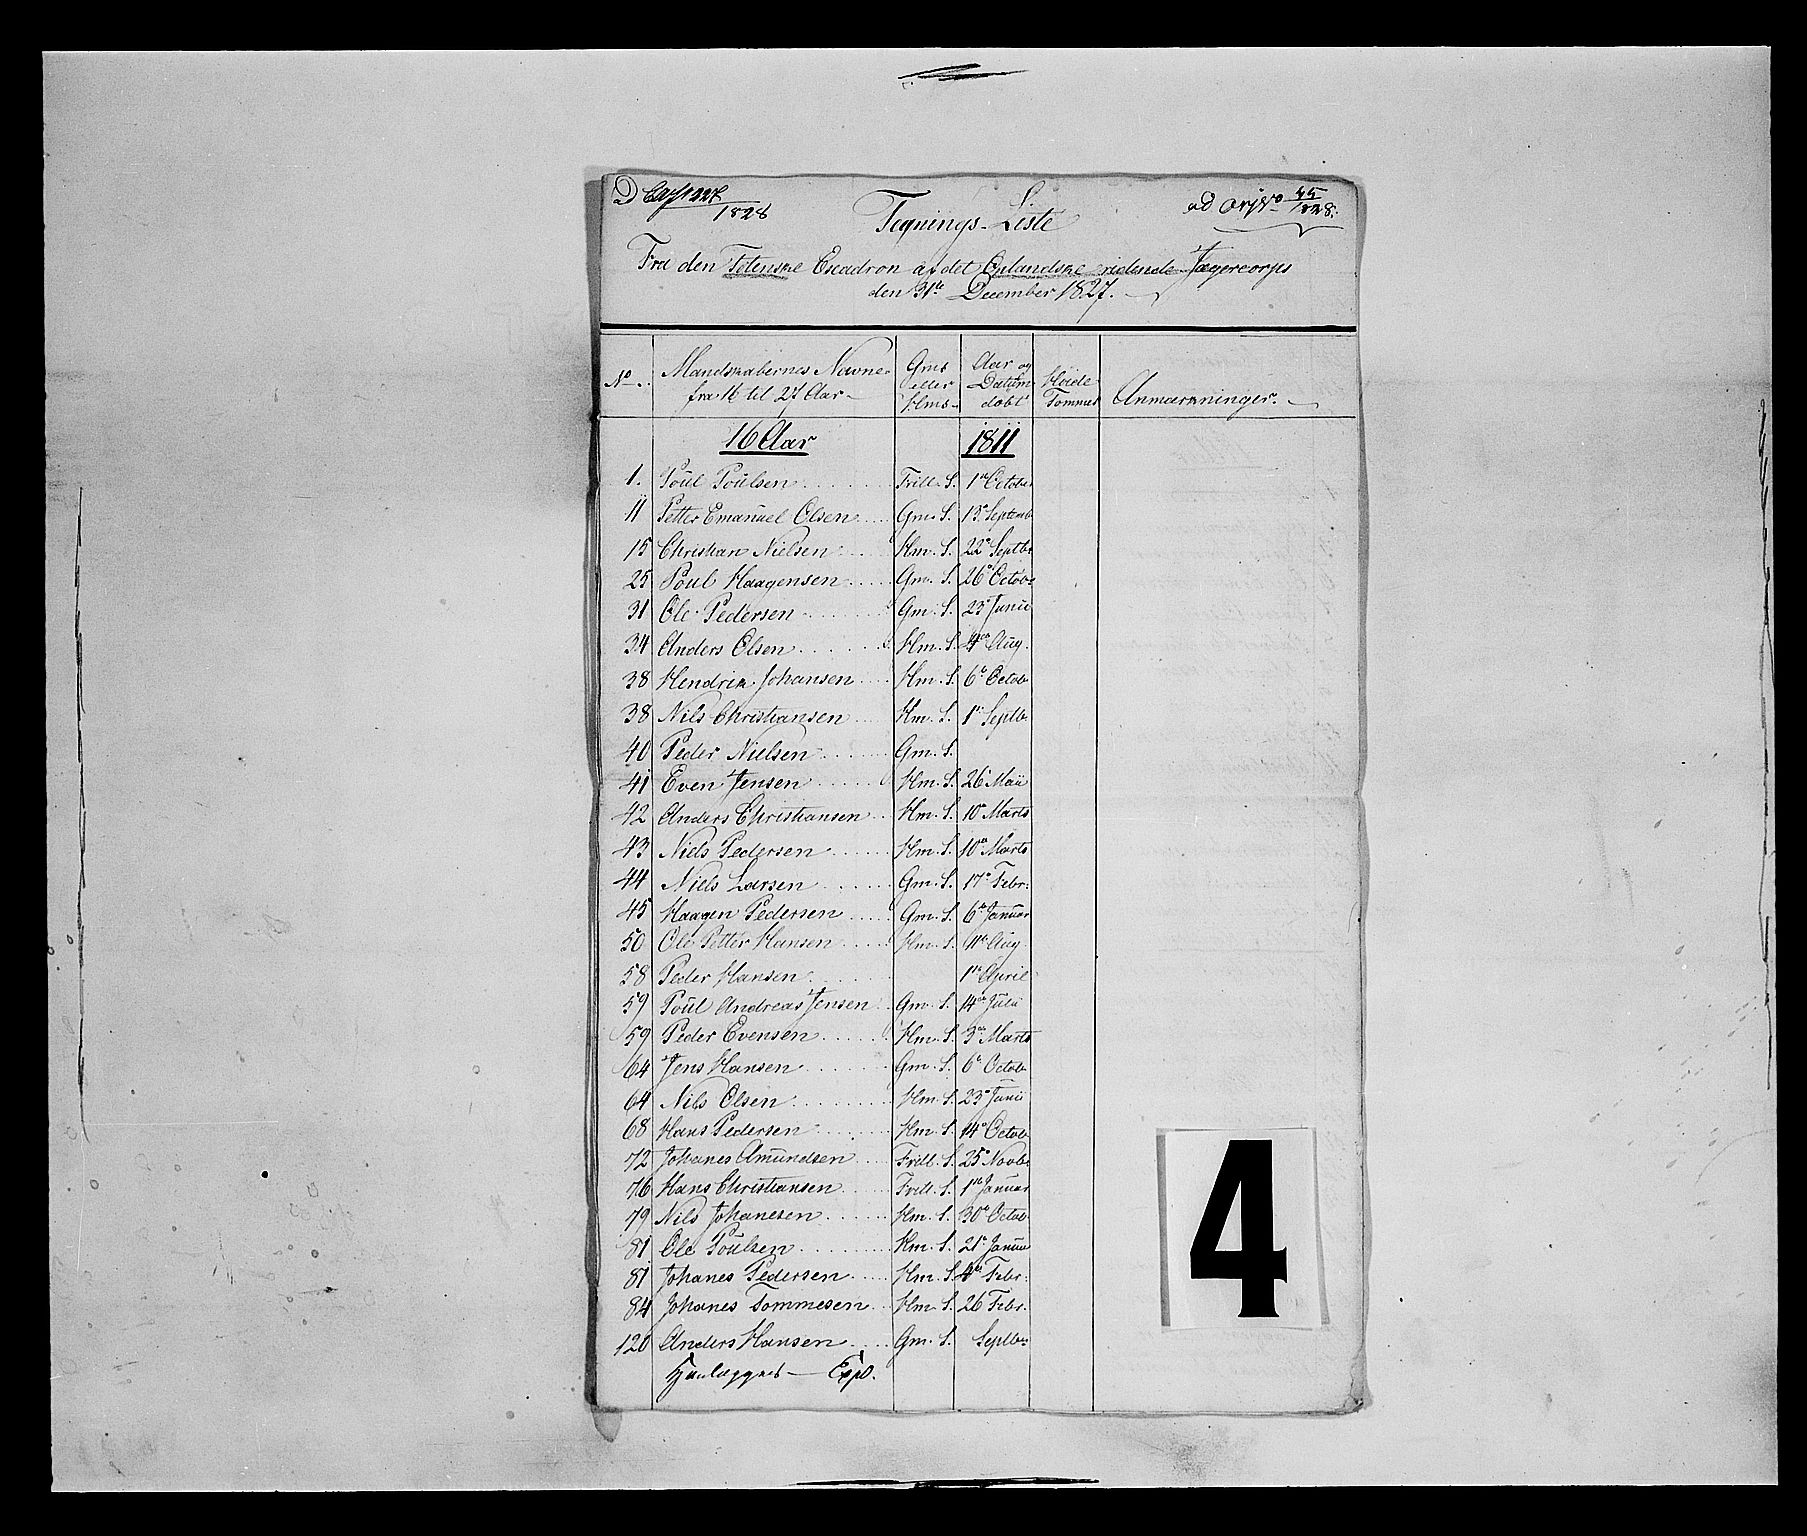 1828
ad
45
1828.
Tegnings-Liste
Fra den Totenske Escadron af det Oplandske ridende Jægercorps
den 31te December 1827.
No. Mandskabernes Navne fra 16 til 27 Aar Gms eller Hms Aar og Datum døbt Høide Tommer Anmærkninger.
16 Aar 1811
1. Poul Poulsen Frill. S. 1te October
11 Petter Emanuel Olsen Gm. S. 13de Septemb
15 Christian Nielsen Hm. S. 22de Septbr
25 Poul Haagensen Gm. S. 26de Octobr
31 Ole Pedersen Gm. S. 23de Junii
34 Anders Olsen Hm. S. 4de Aug.
38 Hendrik Johansen Hm. S. 6te Octob
38 Nils Christiansen Hm. S. 1te Septb
40 Peder Nielsen Gm. S.
41 Even Jensen Hm. S. 26 Maii
42 Anders Christiansen Hm. S. 10de Marts
43 Niels Pedersen Hm. S. 10de Marts
44 Niels Larsen Gm. S. 17de Febr:
45 Haagen Pedersen Gm. S. 6te Januar
50 Ole Petter Hansen Hm. S. 11te Aug
58 Peder Hansen 1te April
59 Poul Andreas Jensen Gm. S. 14de Julii
59 Peder Evensen Hm. S. 3de Marts
64 Jens Hansen Gm. S. 6te Octob
64 Nils Olsen Hm. S. 23de Junii
68 Hans Pedersen Hm. S. 14de Octob
72 Johanes Amundsen Frill. S. 25de Novbr
76 Hans Christiansen Frill. S. 1te Januar
79 Nils Johanesen Hm. S. 30te Octob
81 Ole Poulsen Hm. S. 21de Januar
81 Johanes Pedersen Hm. S. 4de Febr:
84 Johanes Tommesen Hm. S. 26 Febr.
120 Anders Hansen Gm. S. Septbr
Henlægges — Exp.
4